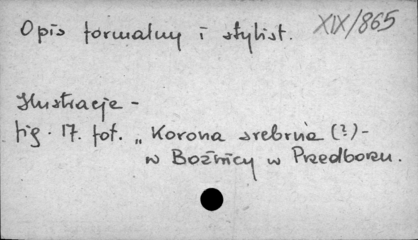 Opis formalny i stylist. XIX/865
Ilustracje -
fig. 17. fot. „Korona srebrna (?) -
w Bożnicy w Przedborzu.